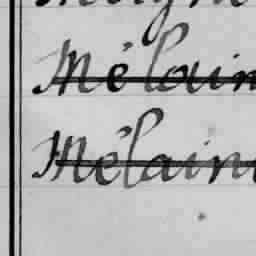 Mélain
Mélain